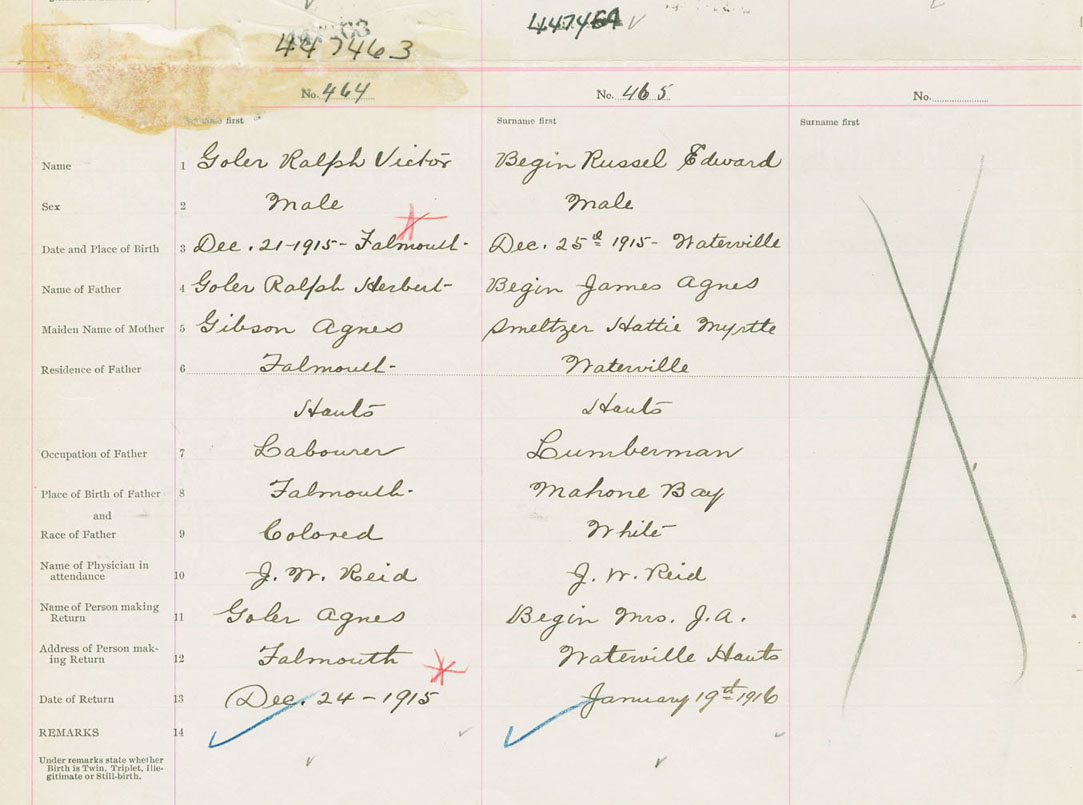 4474EA
447463
No. 464
No. 465
No.
Surname first
Surname first
Surname first
Name 1 Goler Ralph Victor Begin Russel Edward
Sex 2 Male Male
Date and Place of Birth 3 Dec. 21-1915- Falmouth- Dec. 25th 1915- Waterville
Name of Father 4 Goler Ralph Herbert- Begin James Agnes
Maiden Name of Mother 5 Gibson Agnes Smeltzer Hattie Myrtle
Residence of Father 6 Falmouth- Waterville
Hants Hants
Occupation of Father 7 Labourer Lumberman
Place of Birth of Father 8 Falmouth- Mahone Bay
and
Race of Father 9 Colored White
Name of Physician in
attendance 10 J. W. Reid J. W. Reid
Name of Person making
Return 11 Goler Agnes Begin Mrs. J.A.
Address of Person mak-
ing Return 12 Falmouth Waterville Hants
Date of Return 13 Dec. 24-1915 January 19th 1916
REMARKS 14
Under remarks state whether
Birth is Twin, Triplet, Ille-
gitimate or Still-birth.